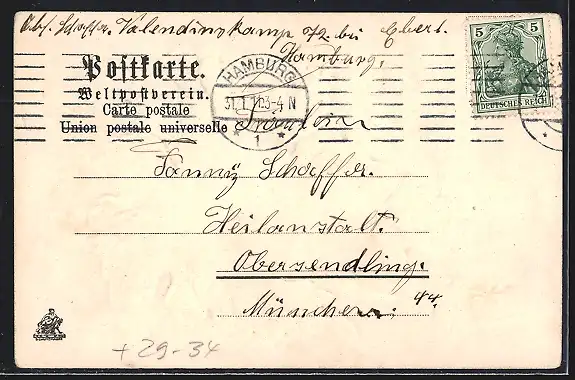 Abs. Schaffer. Valendinskamp 72 bei Ebert.
Hamburg.
Postkarte.
Weltpostverein.
Carte postale
Union postale universelle
HAMBURG
3-4 N
1
5 5
DEUTSCHES REICH
Fräulein
Fanny Schaffer.
Heilanstalt.
Obersendling.
München. 44.
+ 29-34